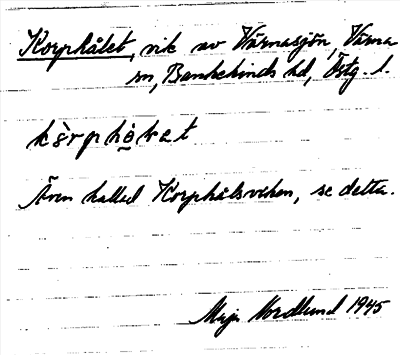 Korphålet, vik av Värnasjön, Värna
sn, Bankekinds hd, Östg. l.
kὸrphọ̀let
Även kallad Korphålsviken, se detta.
Maja Nordlund 1945